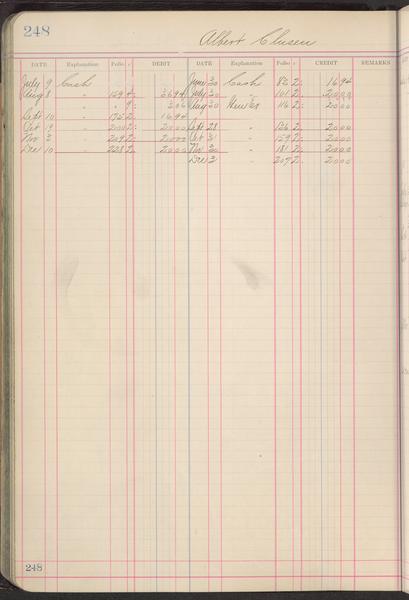 248
Albert Clusen
DATE Explanation Folio ✓ DEBIT DATE Explanation Folio ✓ CREDIT REMARKS
July 9 Cash June 30 Cash 82 2 1694
Aug 8 " 159 4 3694 July 30 " 101 2 2000
" " 9 306 Aug 30 116 2 2000
Sept 10 " 175 2 1694
Oct 19 " 200 2 2000 Sept 28 " 136 2 2000
Nov 2 " 209 2 2000 Oct 31 " 159 2 2000
Dec 10 " 228 2 2000 Nov 30 " 181 2 2000
Dec 3 " 207 2 2000
248